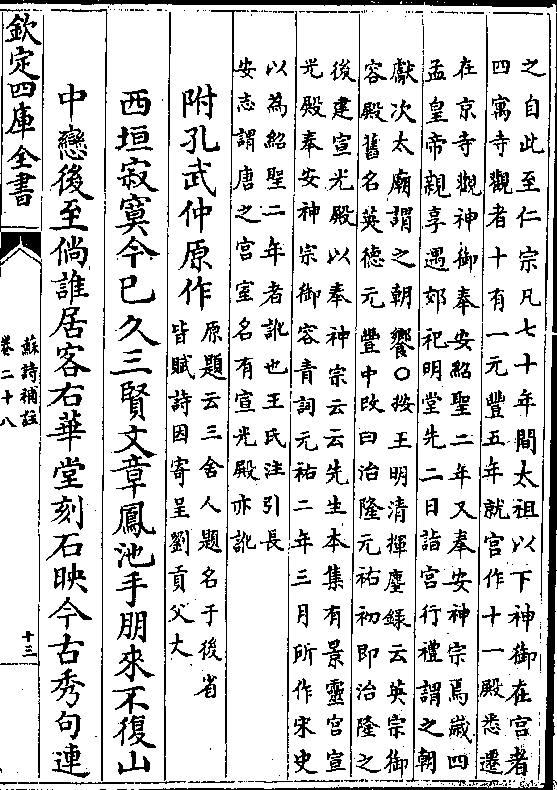 之自此至仁宗凡七十年間太祖以下神御在宮者
四寓寺觀者十有一元豐五年就宮作十一殿悉遷
在京寺觀神御奉安紹聖二年又奉安神宗焉嵗四
孟皇帝親享遇郊祀明堂先二日詣宮行禮謂之朝
獻次太廟謂之朝饗○按王明清揮麈錄云英宗御
容殿舊名英德元豐中改曰治隆元祐初即治隆之
後建宣光殿以奉神宗云云先生本集有景靈宮宣
光殿奉安神宗御容青詞元祐二年三月所作宋史
以為紹聖二年者訛也王氏注引長
安志謂唐之宮室名有宣光殿亦訛
附孔武仲原作
原題云三舍人題名于後省
皆賦詩因寄呈劉貢父大
西垣寂寞今已久三賢文章鳳池手朋來不復山
中戀後至倘誰居客右華堂刻石映今古秀句連
欽定四庫全書
蘇詩補註
卷二十八
十三